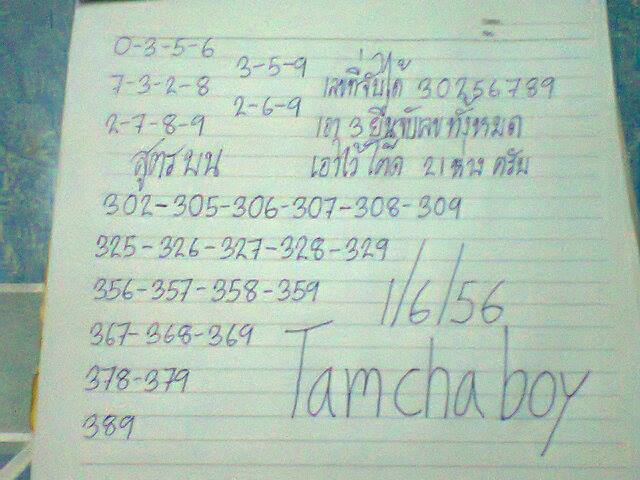 0-3-5-6
3-5-9
7-3-2-8
2-6-9
2-7-8-9
เลขที่จับได้ 30256789
เอา 3 ยืนจับเลขทั้งหมด
เอาไว้ โต๊ด 21 ห่าง ครับ
สูตร บน
302-305-306-307-308-309
325-326-327-328-329
356-357-358-359
367-368-369
378-379
389
1/6/56
Tamchaboy